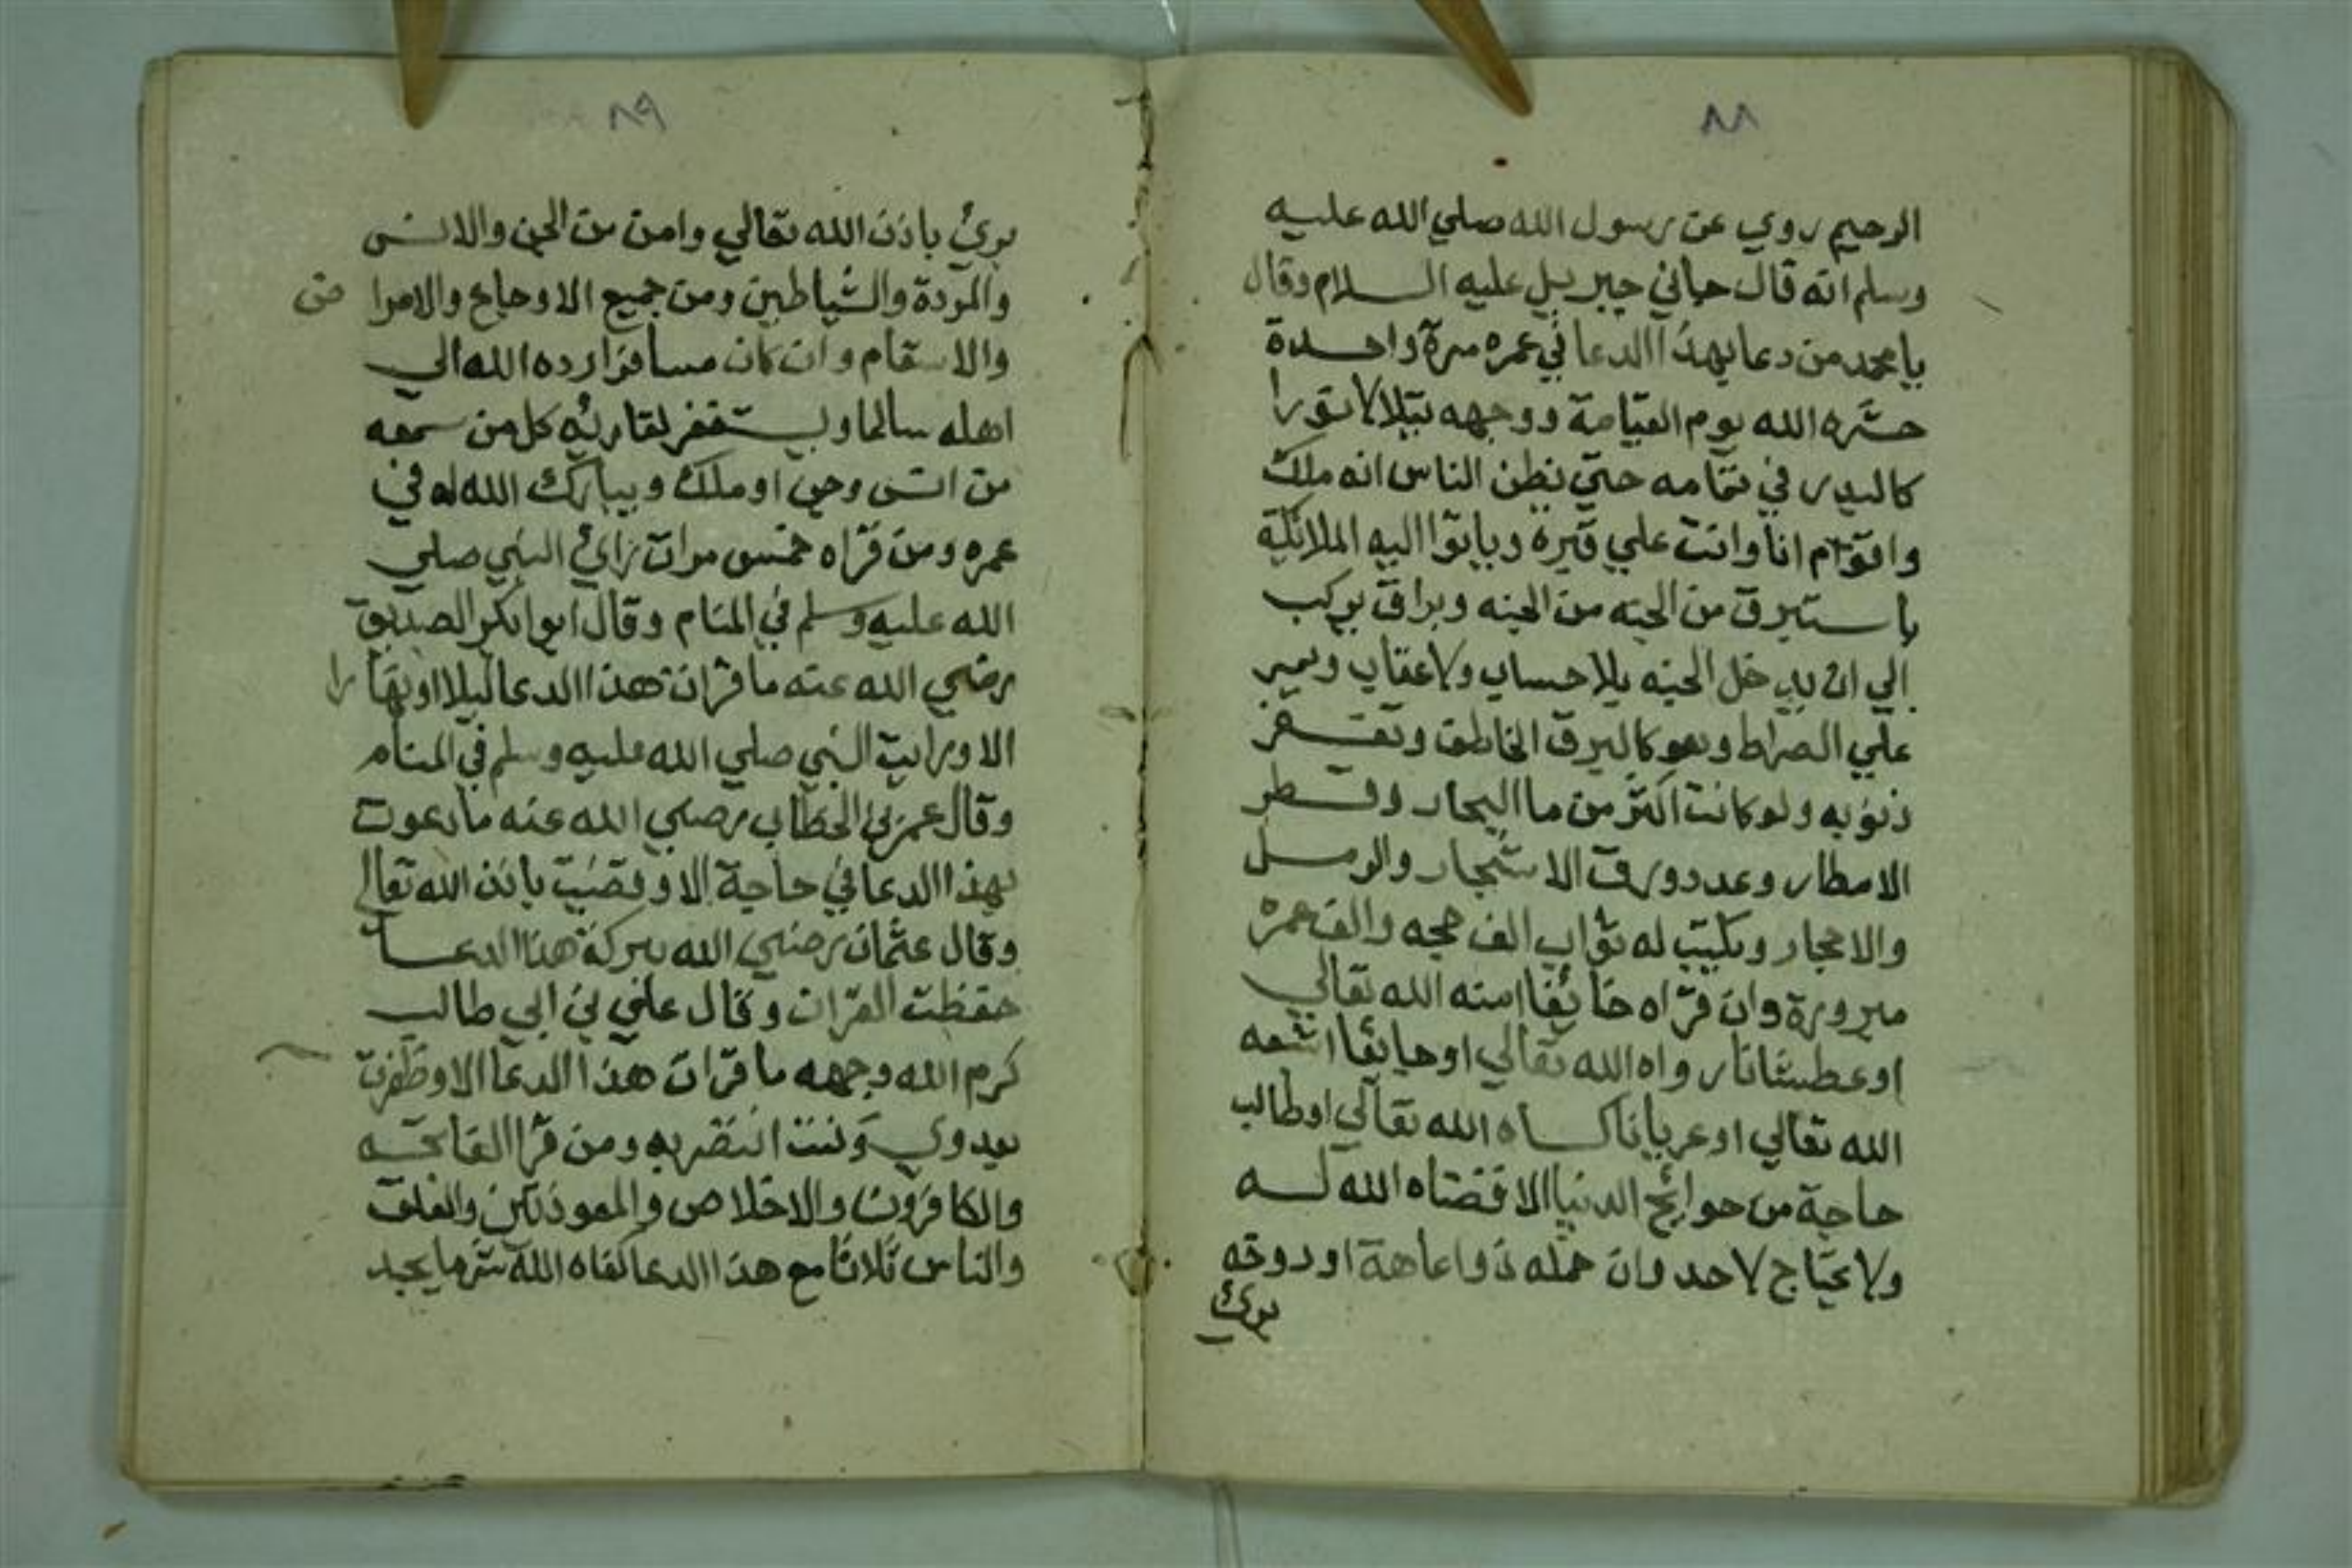 ٨٨
الرحيم روي عن رسول الله صلي الله عليه
وسلم انه قال جاني جبريل عليه السلام وقال
يا محمد من دعا بهذا الدعا في عمره مرة واحدة
حشره الله يوم القيامة ووجهه يتلالا نورا
كالبدر في تمامه حتي يظن الناس انه ملك
واقوم انا وانت علي قبره وياتوا اليه الملائكة
باستبرق من الجنه من الجنه وبراق يركب
الي ان يدخل الجنه بلا حساب ولا عقاب ويمر
علي الصراط وهو كالبرق الخاطف وتغفر
ذنوبه ولو كانت اكثر من ما البحار وقطر
الامطار وعدد ورق الاشجار والرمل
والاحجار ويكتب له ثواب الف حجه والف عمرة
مبرورة وان قراه خائفا امنه الله تعالي
او عطشانا رواه الله تعالي او جايعا اشبعه
الله تعالي او عريانا كساه الله تعالي او طالب
حاجة من حوائج الدنيا الا قضاه الله له
ولا يحتاج لاحد وان حمله ذوا عاهة او دوخه
برئ
٨٩
برئ باذن الله تعالي وامن من الجن والانس
والمردة والشياطين ومن جميع الاوجاع والامراض
والاسقام وان كان مسافرا رده الله الي
اهله سالما ويستغفر لقاريه كل من سمعه
من انس وجن او ملك ويبارك الله له في
عمره ومن قراه خمس مرات راي النبي صلي
الله عليه وسلم في المنام وقال ابوا بكر الصديق
رضي الله عنه ما قرات هذا الدعا ليلا او نهارا
الا ورايت النبي صلي الله عليه وسلم في المنام
وقال عمر بن الخطاب رضي الله عنه ما دعوت
بهذا الدعا في حاجة الا وقضيت باذن الله تعالي
وقال عثمان رضي الله ببركة هذا الدعا
حفظت القران وقال علي بن ابي طالب
كرم الله وجهه ما قرات هذا الدعا الا وظفرت
بعدوي وكنت انتصر به ومن قرا الفاتحه
والكافرون والاخلاص والمعوذتين والفلق
والناس ثلاثا مع هذا الدعا كفاه الله شر ما يجد